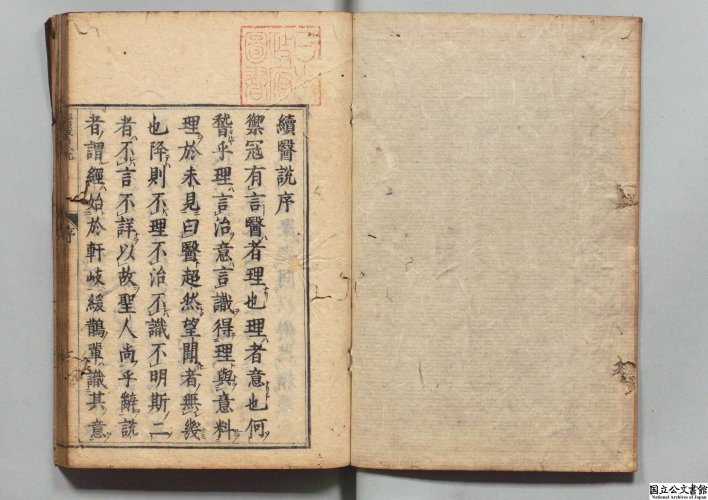 續醫說序
禦冠有言醫者理也理者意也何
嵆乎理言治意言識得理與意料
理於未見曰醫超然望聞者無幾
也降則不理不治不識不明斯二
者不言不詳以故聖人尚乎辭說
者謂經始於軒岐緩鵲輩識其意
国立公文書館
National Archives of Japan